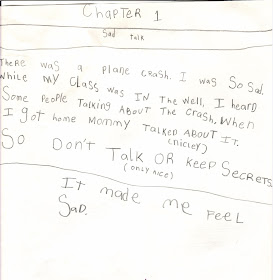 Chapter 1
Sad talk
There was a plane crash. I was so sad.
While my class was in the well, I heard
Some people talking about the crash, when
I got home mommy talked about it.
(nicley)
So don't talk or keep secrets.
(only nice)
It made me feel
Sad.